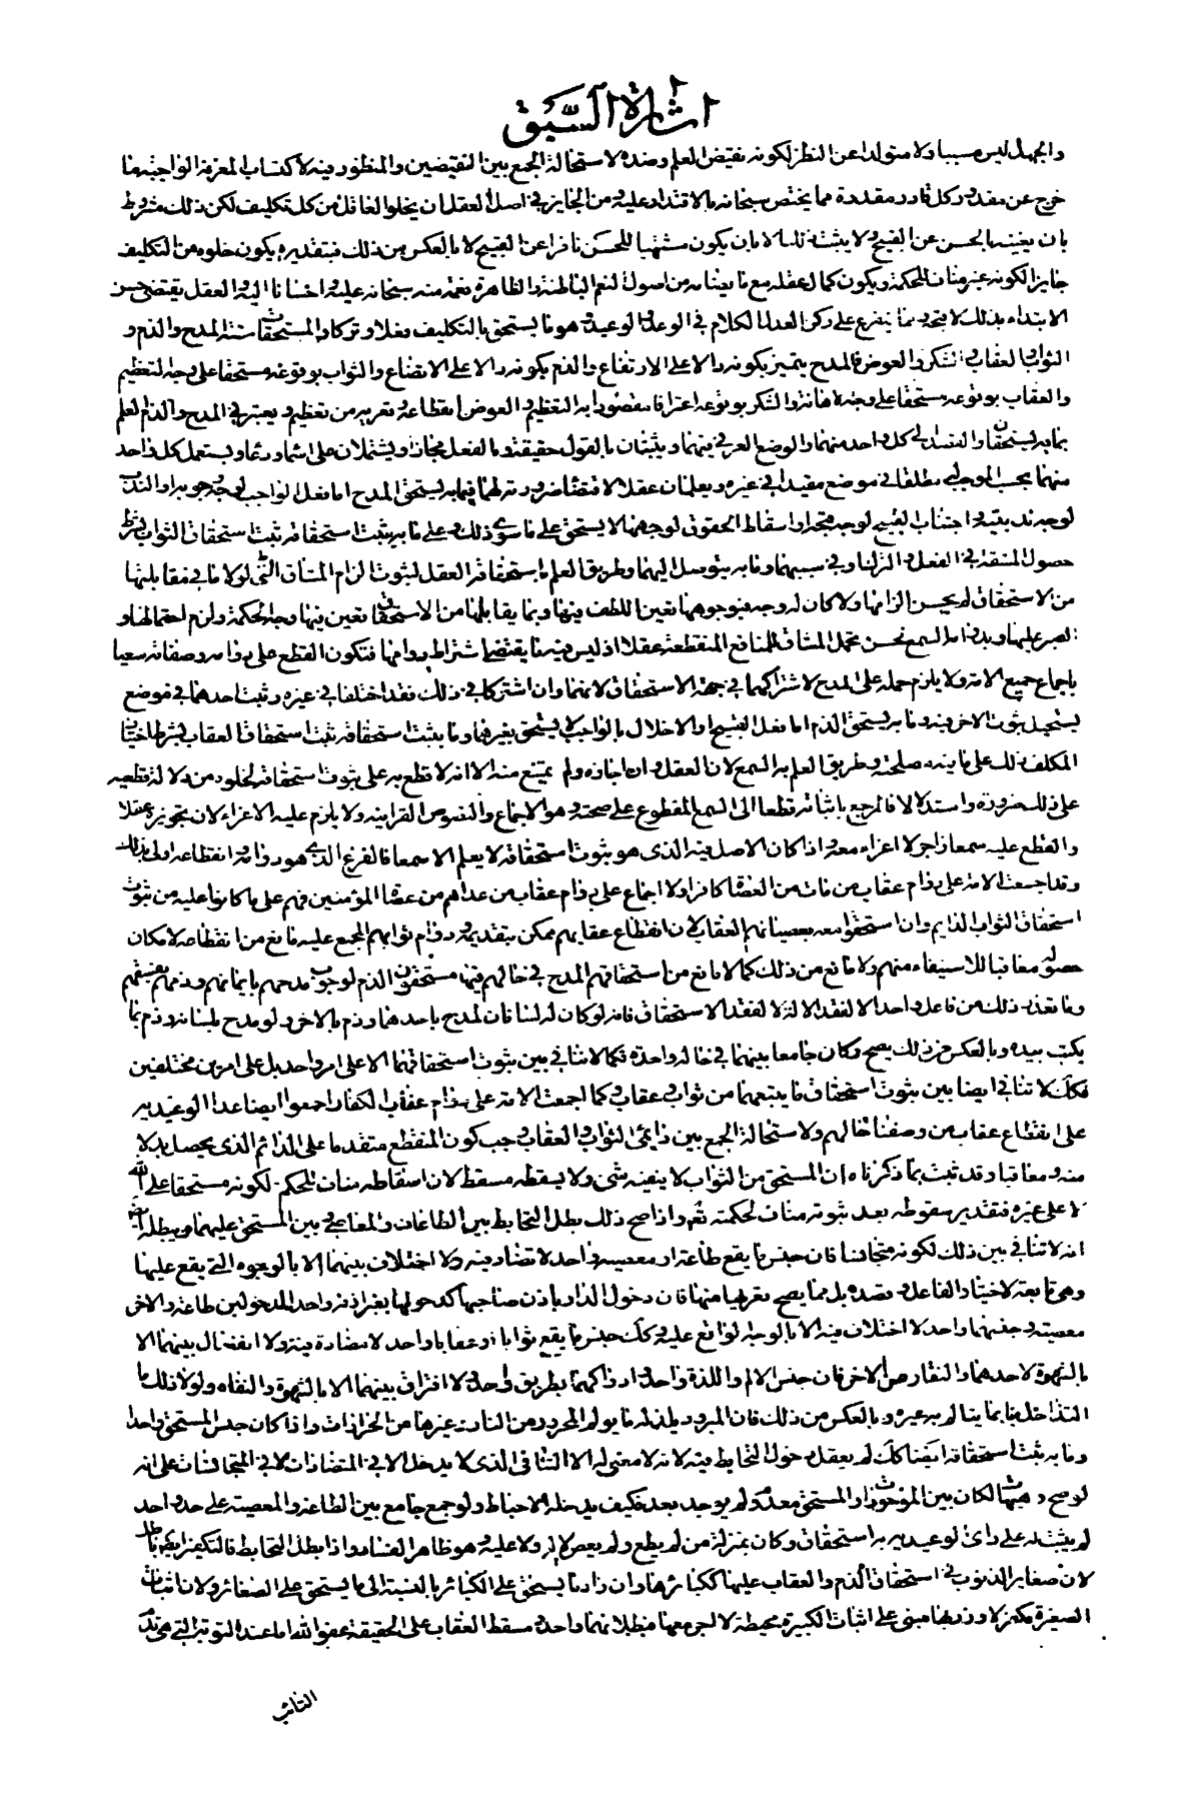 اشارة السبق
والجهل ليس مسببا ولا متولدا عن النظر لكونه نقيض العلم وضده لاستحالة الجمع بين النقيضين والمنظور فيه لاكتساب المعرفة الواجبة ما
خرج عن مقدور كل قادر بقدرة مما يختص سبحانه بالاقتدار عليه ومن الجايز في اصل العقل ان يخلو العاقل من كل تكليف لكن ذلك مشروط
بان يغنيه بالحسن عن القبيح ولا يثبت ذلك الا بان يكون مشتهيا للحسن نافرا عن القبيح لا بالعكس من ذلك فبتقديره يكون خلوه من التكليف
جايزا لكونه غير مناف للحكمة ويكون كمال عقله مع ما يتبعه من اصول النعم الباطنة والظاهرة نعمة منه سبحانه عليه واحسانا اليه والعقل يقتضي حسن
الابتداء بذلك لا قبحه ومما يتفرع على ركن العدل الكلام في الوعد والوعيد وهو ما يستحق بالتكليف فعلا وتركا والمستحقات ستة المدح والذم و
الثواب والعقاب والشكر والعوض فالمدح يتميز بكونه دالا على الارتفاع والذم بكونه دالا على الاتضاع والثواب بوقوعه مستحقا على وجه التعظيم
والعقاب بوقوعه مستحقا على وجه الاهانة والشكر بوقوعه اعترافا مقصودا به التعظيم والعوض بانقطاعه وتعريه من تعظيم ويعتبر في المدح والذم العلم
بما به يستحقان والقصد الى كل واحد منهما والوضع العرفي فيهما ويثبتان بالقول حقيقة وبالفعل مجازا ويشتملان على اسماء ويستعمل كل واحد
منهما بحسب الموجب له مطلقا في موضع مقيدا في غيره ويعلمان عقلا لاقتضاء ضرورته لهما فيما به يستحق المدح اما فعل الواجب لوجه وجوبه او الندب
لوجه ندبيته او اجتناب القبيح لوجه قبحه او اسقاط الحقوق لوجهها لا يستحق على ما سوى ذلك وعلى ما به يثبت استحقاقه ثبت استحقاق الثواب بشرط
حصول المشقة في الفعل والترك او في سببهما وما به يتوصل اليهما وطريق العلم باستحقاقه العقل لثبوت الزام المشاق التي لولا ما في مقابلتها
من الاستحقاق لم يحسن الزامها ولا كان له وجه فبوجوهها تعين اللطف فيها وبما يقابلها من الاستحقاق تعين فيها وجه الحكمة ولزم احتمالها و
الصبر عليها وبدوامه السمع لحسن تحمل المشاق للمنافع المنقطعة عقلا اذ ليس فيه ما يقتضي اشتراط دوامها فتكون القطع على دوامه وصفاته سمعيا
باجماع جميع الامة ولا يلزم حمله على المدح لاشتراكهما في جهة الاستحقاق لانهما وان اشتركا في ذلك فقد اختلفا في غيره وثبت احدهما في موضع
يستحيل ثبوت الاخر فيه وما به يستحق الذم اما فعل القبيح او الاخلال بالواجب لا يستحق بغيرهما وما يثبت استحقاقه ثبت استحقاق العقاب بشرط اختيار
المكلف ذلك على ما فيه مصلحته وطريق العلم به السمع لان العقل وان اجازه ولم يمتنع منه الا انه لا قطع به على ثبوت استحقاقه لخلوه من دلالة قطعية
على ذلك ضرورة واستدلالا فالمرجع باثباته قطعا الى السمع المقطوع على صحته وهو الاجماع والنصوص القرآنية ولا يلزم عليه الاغراء لان تجويزه عقلا
والقطع عليه سمعا زاجر لا اغراء معه واذا كان الاصل فيه الذي هو ثبوت استحقاقه لا يعلم الا سمعا فالفرع الذي هو دوامه وانقطاعه اولى بذلك
وقد اجمعت الامة على دوام عقاب من مات من العصاة كافرا ولا اجماع على دوام عقاب من عداهم من عصاة المؤمنين فهم على ما كانوا عليه من ثبوت
استحقاق الثواب الدايم وان استحقوا معه بعصيانهم العقاب لان انقطاع عقابهم ممكن بتقديمه ودوام ثوابهم المجمع عليه مانع من انقطاعه لامكان
حصوله معاقبا للاستيفاء منهم ولا مانع من ذلك كما لا مانع من استحقاقهم المدح في حالهم فيها مستحقون الذم لوجوب مدحهم بايمانهم وذمهم بفسقهم
وما يتعذر ذلك من فاعل واحد الا لفقد الالة لا لفقد الاستحقاق فانه لو كان له لسانان لمدح باحدهما وذم بالاخر ولو مدح بلسانه وذم بما
يكتب بيده وبالعكس من ذلك يصح وكان جامعا بينهما في حالة واحدة فكما لا تنافي بين ثبوت استحقاقهما الا على امر واحد بل على امرين مختلفين
فكك لا تنافي ايضا بين ثبوت استحقاق ما يتبعهما من ثواب وعقاب وكما اجمعت الامة على دوام عقاب الكفار اجمعوا ايضا عدا الوعيدية
على انقطاع عقاب من وصفنا حالهم ولاستحالة الجمع بين دايمي الثواب والعقاب وجب كون المنقطع متقدما على الدائم الذي يحصل بدلا
منه ومعاقبا وقد ثبت بما ذكرناه ان المستحق من الثواب لا ينفيه شئ ولا يسقطه مسقط لان اسقاطه مناف للحكمة لكونه مستحقا على الله
لا على غيره فتقدير سقوطه بعد ثبوته مناف لحكمته تعم واذا صح ذلك بطل التحابط بين الطاعات والمعاصي وبين المستحق عليهما ويبطله ايضا
انه لا تنافي بين ذلك لكونه متجانسا فان جنس ما يقع طاعة او معصية واحد لا تضاد فيه ولا اختلاف بينهما الا بالوجوه التي يقع عليها
وهي تابعة لاختيار الفاعل وقصده بل مما يصح تعريها منها فان دخول الدار باذن صاحبها كدخولها بغير اذنه واحد المدخولين طاعة والاخر
معصية وجنسهما واحد لا اختلاف فيه الا بالوجه الواقع عليه وكك جنس ما يقع ثوابا او عقابا واحد لا مضادة فيه ولا انفصال بينهما الا
بالشهوة لاحدهما والنفار من الاخر فان جنس الالم واللذة واحد وادراكهما بطريق واحد ولا افتراق بينهما الا بالشهوة والنفار ولولا ذلك ما
التذ احدنا بما يتالم به غيره وبالعكس من ذلك فان المبرود يلتذ بما يولم المحرور من النار وغيرها من الحرارات واذا كان جنس المستحق واحدا
وما به يثبت استحقاقه ايضا كك لم يعقل دخول التحابط فيه لانه لا معنى له الا التنافي الذي لا يدخل الا في المتضادات لا في المتجانسات على انه
لو صح وهيهات لكان بين الموجودات والمستحق معدوم لم يوجد بعد فكيف يدخله الاحباط ولو جمع جامع بين الطاعة والمعصية على حد واحد
لم يثبت له على راي الوعيدية استحقاق وكان بمنزلة من لم يطع ولم يعص لا له ولا عليه وهو ظاهر الفساد واذا بطل التحابط فالتكفير ايضا باطل
لان صغاير الذنوب في استحقاق الذم والعقاب عليها ككبائرها وان زاد ما يستحق على الكبائر بالنسبة الى ما يستحق على الصغائر ولان اثبات
الصغيرة مكفرة لا وزر لها مبني على اثبات الكبيرة محبطة لا اجر معها فبطلانهما واحد ومسقط العقاب على الحقيقة عفو الله اما عند التوبة التي هي ندم
التائب